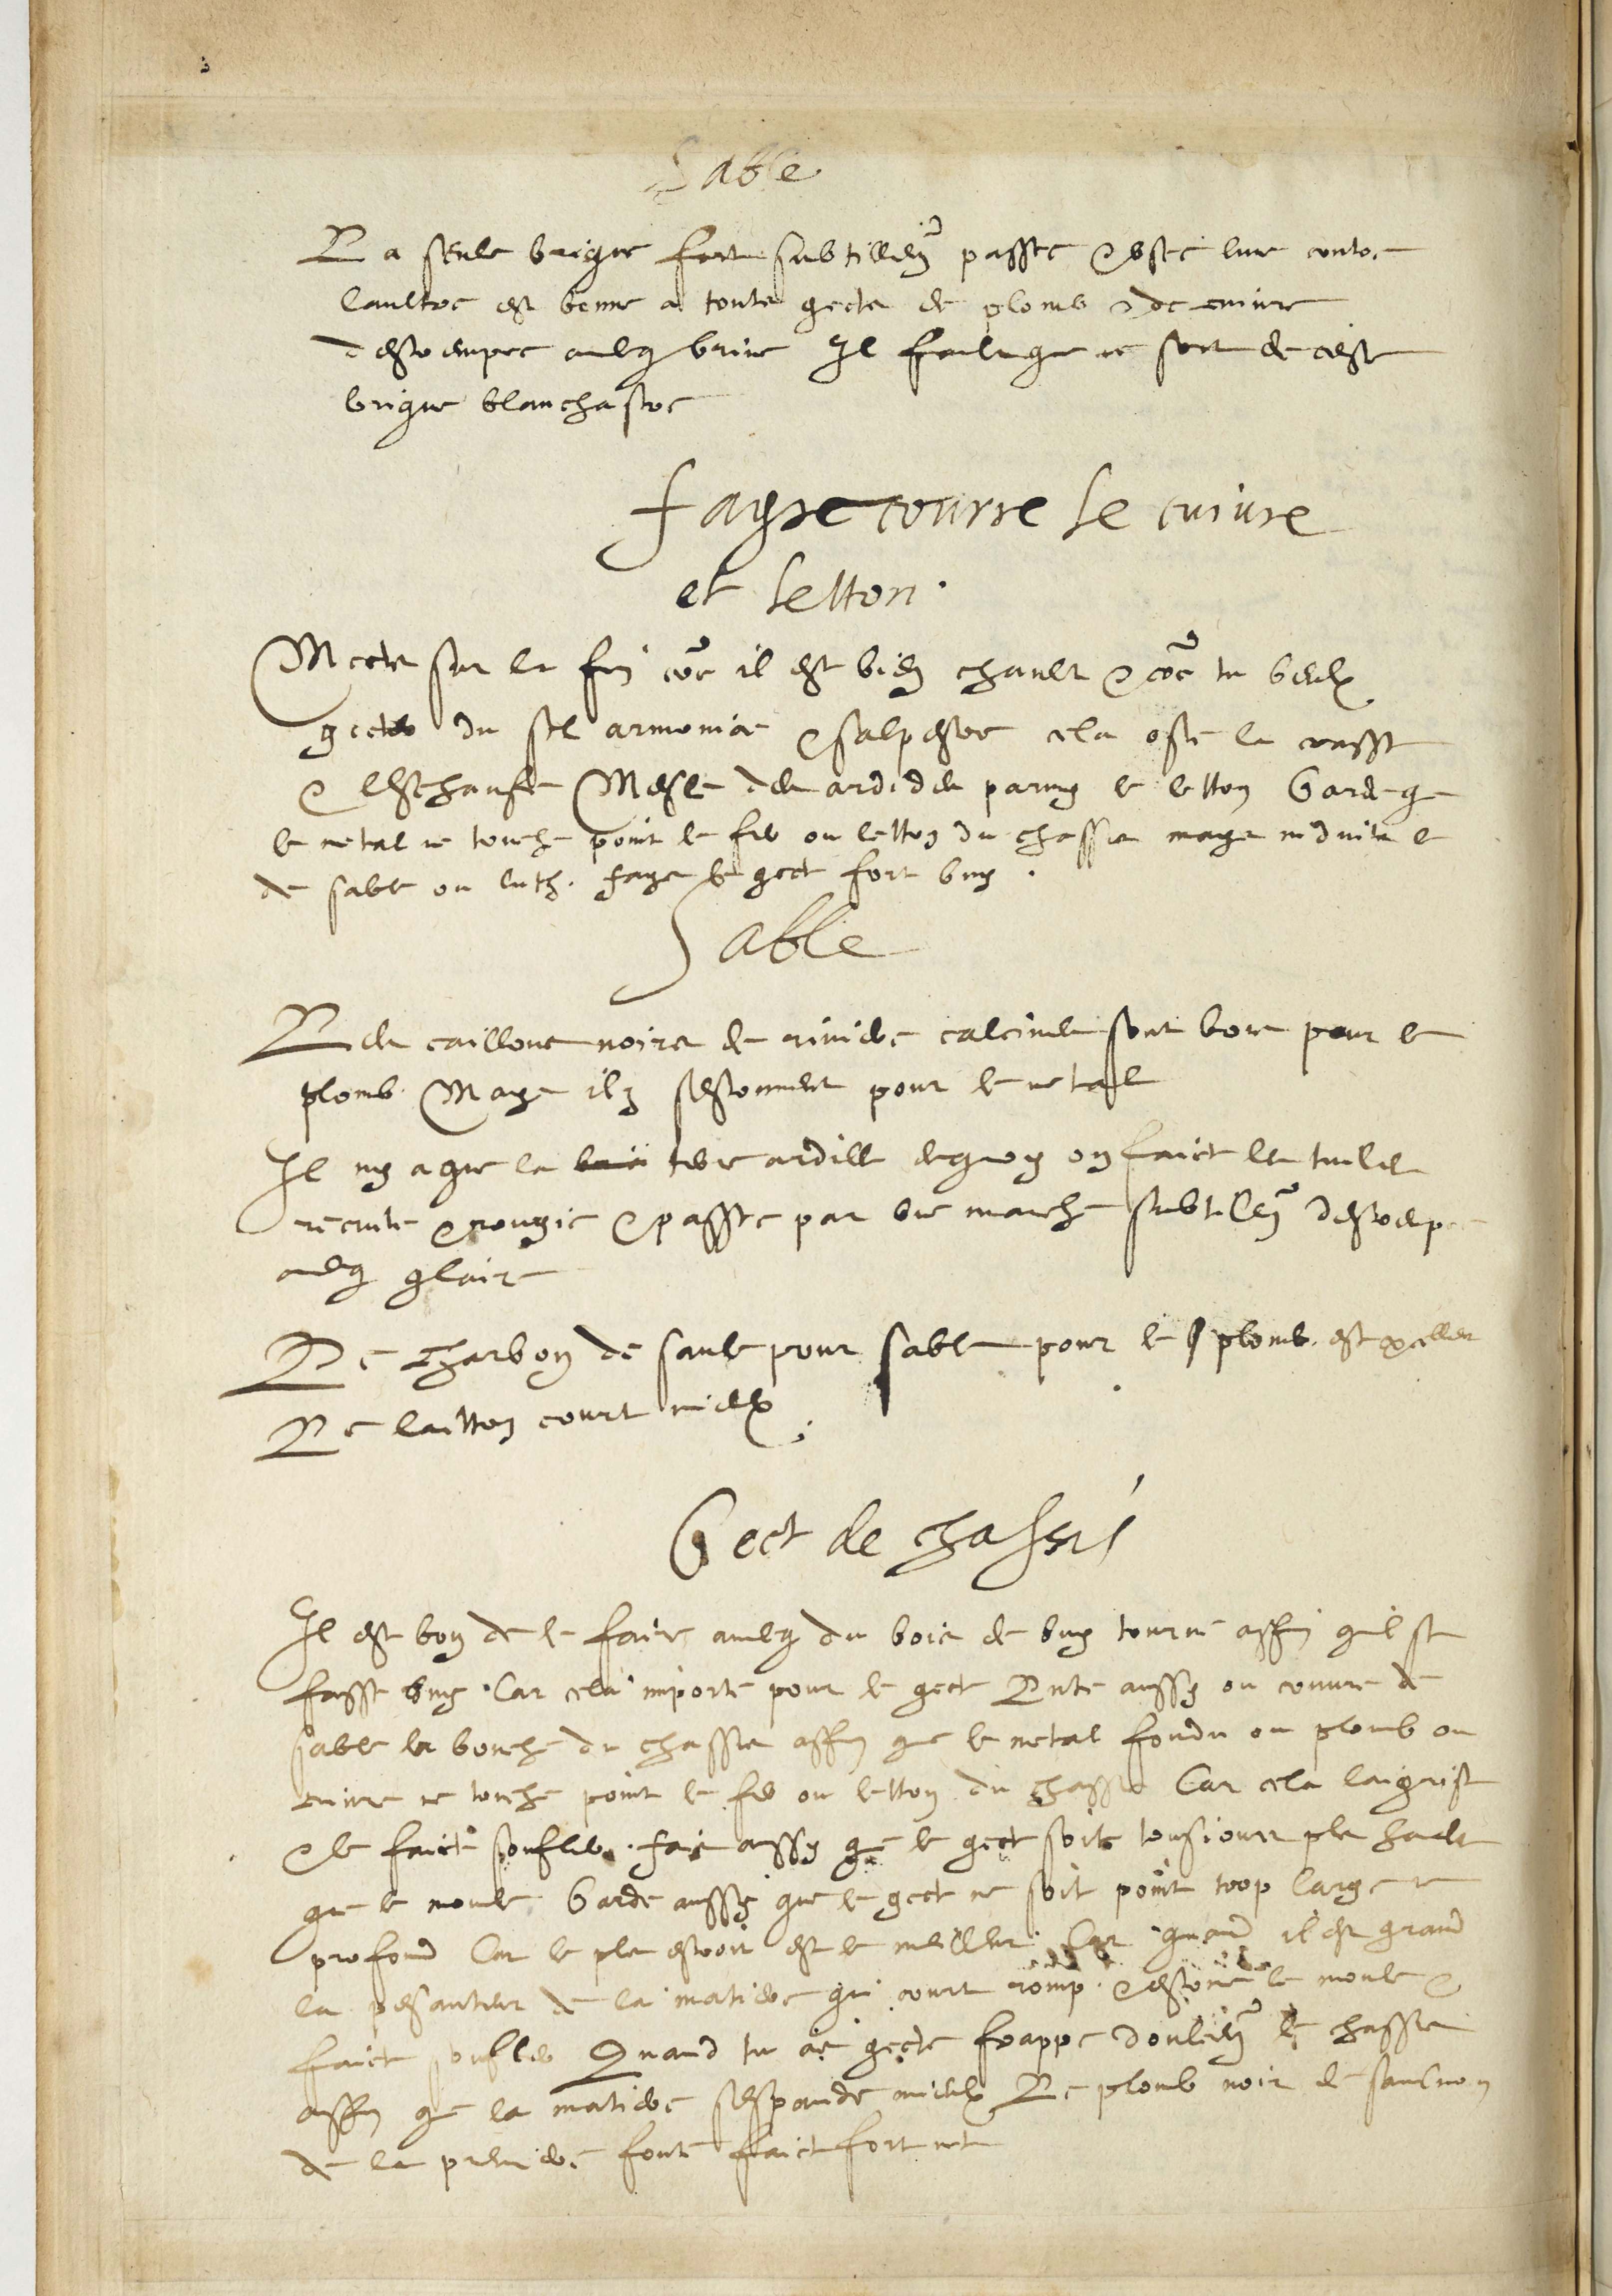 Sable
La seule brique fort subtillem̃ passee & usee lune contre
laultre est bonne a toutes gectes de plomb & de cuivre
destrempee avecq urine Il fault que ce soit de ceste
brique blanchastre
Fayre courre le cuivre
et letton
Mects sur la fin cõe il est bien chault & cõe tu veulx
gecter du sel armoniac & salpestre cela oste la crasse
& leschaufe Mesle des ardz parmy le letton Garde que
le metal ne touche point le fer ou letton du chassis mays enduits le
de sable ou luth. fays le gect fort uny
Sable
Les caillous noirs de riviere calcines sont bons pour le
plomb Mays ilz sestonnent pour le metal
Il ny a que la terre ardille de quoy on faict les tuiles
recuite & rougie & passee par une manche subtillem̃ destrempee
avecq glaire
Le charbon de saule pour sable pour le plomb est excellent
Le laitton court mieulx
Gect de chassis
Il est bon de le faire avecq du bois de buy tourné affin quil se
fasse uny Car cela importe pour le gect Lute aussy ou couvre de
sable la bouche du chassis affin que le metal fondu ou plomb ou
cuivre ne touche point le fer ou letton du chassis Car cela laigrist
& le faict soufler. fais aussy que le gect soit tousiours plus hault
que le moule Garde aussy que le gect ne soit point trop large ne
profond Car le plus estroit est le meilleur Car quand il est grand
la pesanteur de la matiere qui court romp & estonne le moule &
faict soufler Quand tu as gecté frappe doulcem̃ le chassis
affin que la matiere sespande mieulx Le plomb noir de saulmon
de la premiere fonte faict fort net